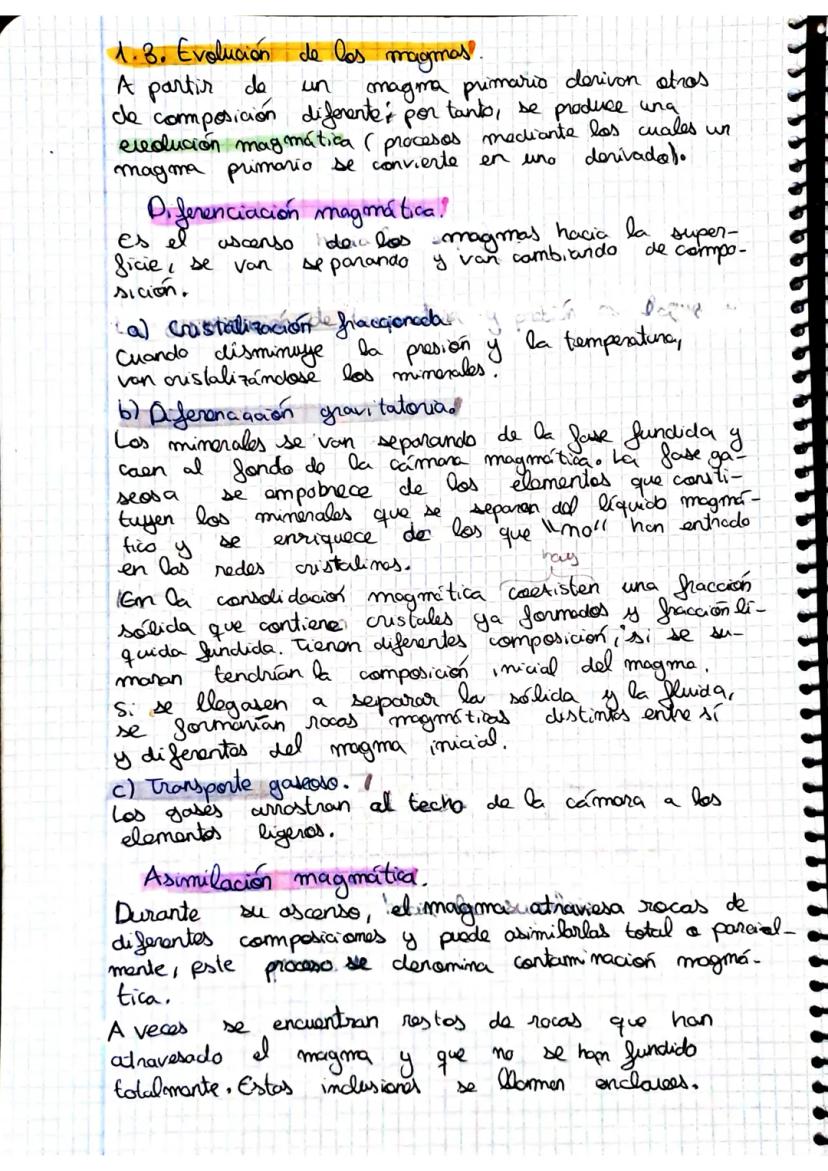 1.3. Evolución de los magmas.
A partir de un magma primario derivan otros
de composición diferente; por tanto, se produce una
evolución magmática (procesos mediante los cuales un
magma primario se convierte en uno derivado).
Diferenciación magmática.
Es el ascenso de los magmas hacia la super-
ficie, se van separando y van cambiando de compo-
sición.
a) Cristalización fraccionada
Cuando disminuye la presión y la temperatura,
van cristalizándose los minerales.
b) Diferenciación gravitatoria.
Los minerales se van separando de la fase fundida y
caen al fondo de la cámara magmática. La fase ga-
seosa se empobrece de los elementos que consti-
tuyen los minerales que se separan del líquido magmá-
tico y se enriquece de los que "no" han entrado
en las redes cristalinas.
hay
En la consolidación magmática coexisten una fracción
sólida que contiene cristales ya formados y fracción lí-
quida fundida. Tienen diferentes composición, si se su-
maran tendrían la composición inicial del magma.
Si se llegasen a separar la sólida y la fluida,
se formarían rocas magmáticas distintas entre sí
y diferentes del magma inicial.
c) Transporte gaseoso.
Los gases arrostran al techo de la cámara a los
elementos ligeros.
Asimilación magmática.
Durante su ascenso, el magma atraviesa rocas de
diferentes composiciones y puede asimilarlas total o parcial-
mente, este proceso se denomina contaminación magmá-
tica.
A veces se encuentran restos de rocas que han
atravesado el magma y que no se han fundido
totalmente. Estas inclusiones se llamen enclaves.